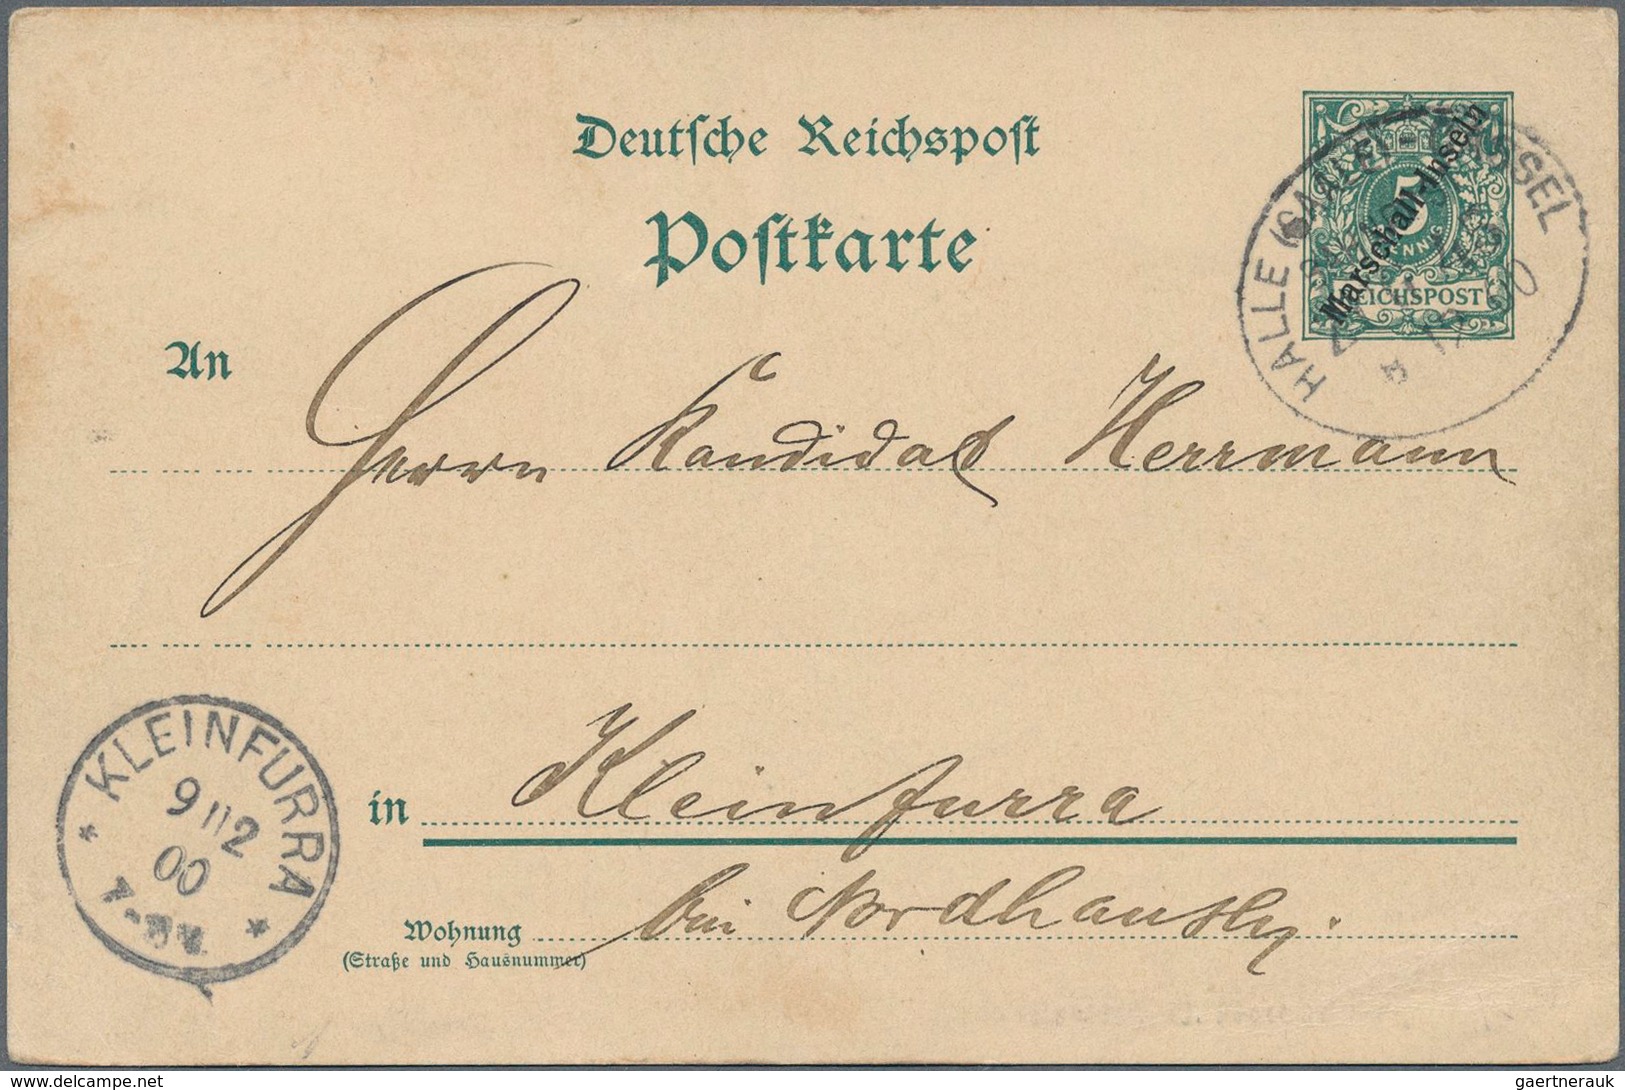 Deutsche Reichspost
Postkarte
5
REICHSPOST
Marschall-Inseln
HALLE (SAALE) - CASSEL
An
Herrn Kandidat Herrmann
KLEINFURRA
9 2
00
in Kleinfurra
bei Nordhausen.
Wohnung
(Straße und Hausnummer)
www.delcampe.net
gaertnerauk